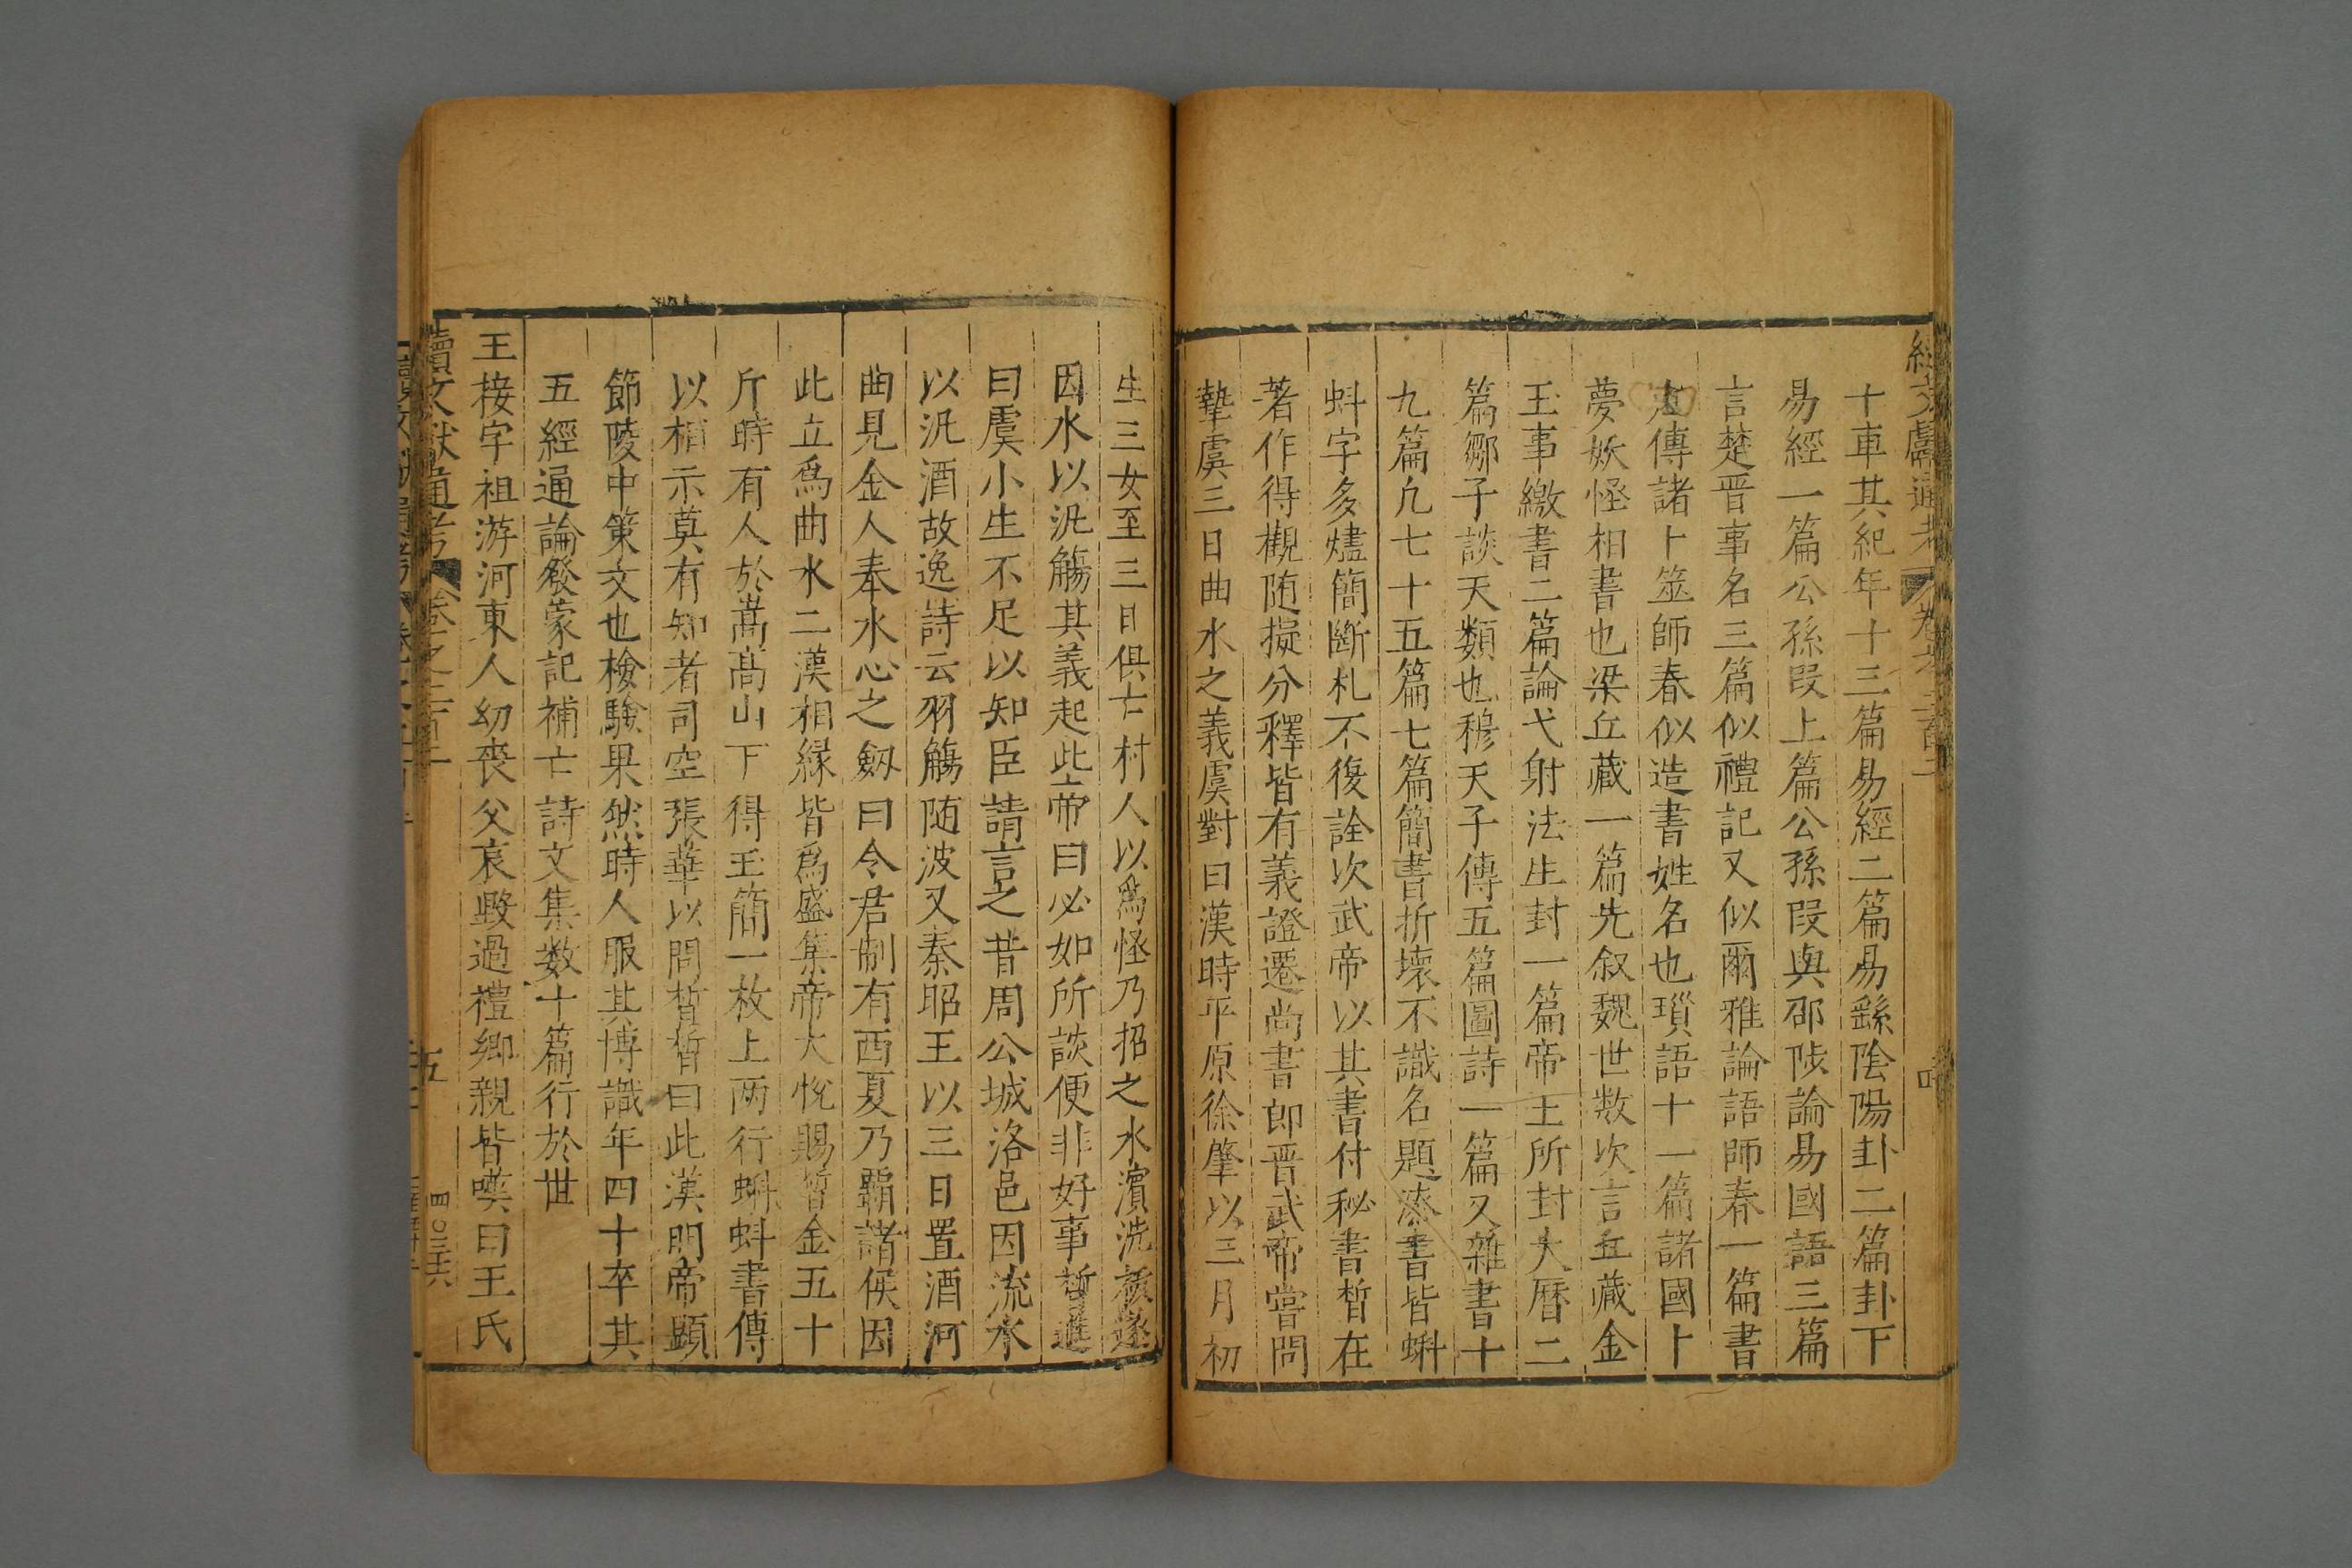 十車其紀年十三篇易經二篇易繇隂陽卦二篇卦下
易經一篇公孫叚上篇公孫叚與邵陟論易國語三篇
言楚晋事名三篇似禮記又似爾雅論語師春一篇書
左傳諸卜筮師春似造書姓名也瑣語十一篇諸國卜
夢妖怪相書也梁丘藏一篇先叙魏世数次言丘藏金
玉事繳書二篇論弋射法生封一篇帝王所封大曆二
篇鄒子談天類也穆天子傳五篇圖詩一篇又雜書十
九篇凢七十五篇七篇簡書折壞不識名題漆書皆蝌
蚪字多燼簡斷札不復詮次武帝以其書付秘書晳在
著作得觀随擬分釋皆有義證遷尚書郎晋武帝嘗問
摯虞三日曲水之義虞對曰漢時平原徐肇以三月初
生三女至三日俱亡村人以爲怪乃招之水濱洗祓遂
因水以汎觴其義起此帝曰必如所談便非好事晳進
曰虞小生不足以知臣請言之昔周公城洛邑因流水
以汎酒故逸詩云羽觴随波又秦昭王以三日置酒河
曲見金人奉水心之劔曰令君制有西夏乃覇諸侯因
此立爲曲水二漢相縁皆爲盛集帝大恱賜晳金五十
斤時有人於嵩髙山下得玉簡一枚上两行蝌蚪書傳
以相示莫有知者司空張華以問晳晳曰此漢明帝顯
節陵中策文也檢驗果然時人服其博識年四十卒其
五經通論發蒙記補亡詩文集数十篇行於世
王接字祖游河東人幼喪父哀毁過禮鄉親皆嘆曰王氏
續文献通考 卷之二百二 五
四〇三六